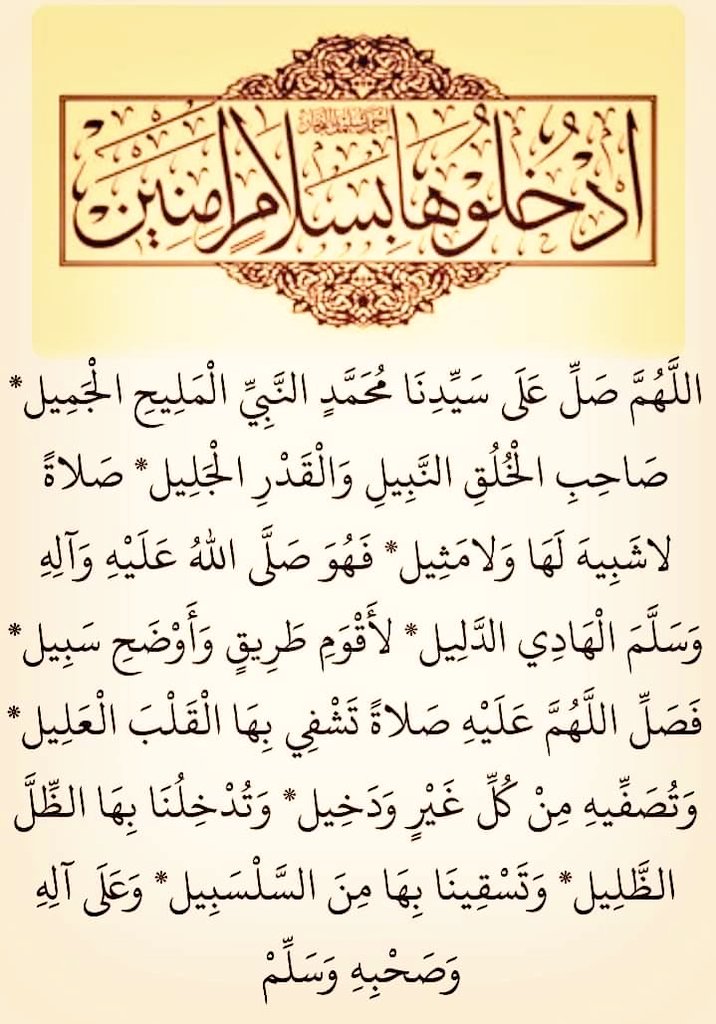 ادْخُلُوهَا بِسَلَامٍ آمِنِينَ
اللَّهُمَّ صَلِّ عَلَى سَيِّدِنَا مُحَمَّدٍ النَّبِيِّ الْمَلِيحِ الْجَمِيل*
صَاحِبِ الْخُلُقِ النَّبِيلِ وَالْقَدْرِ الْجَلِيل* صَلاةً
لاشَبِيهَ لَهَا وَلامَثِيل* فَهُوَ صَلَّى اللهُ عَلَيْهِ وَآلِهِ
وَسَلَّمَ الْهَادِي الدَّلِيل* لأَقْوَمِ طَرِيقٍ وَأَوْضَحِ سَبِيل*
فَصَلِّ اللَّهُمَّ عَلَيْهِ صَلاةً تَشْفِي بِهَا الْقَلْبَ الْعَلِيل*
وَتُصَفِّيهِ مِنْ كُلِّ غَيْرٍ وَدَخِيل* وَتُدْخِلُنَا بِهَا الظِّلَّ
الظَّلِيل* وَتَسْقِينَا بِهَا مِنَ السَّلْسَبِيل* وَعَلَى آلِهِ
وَصَحْبِهِ وَسَلِّمْ